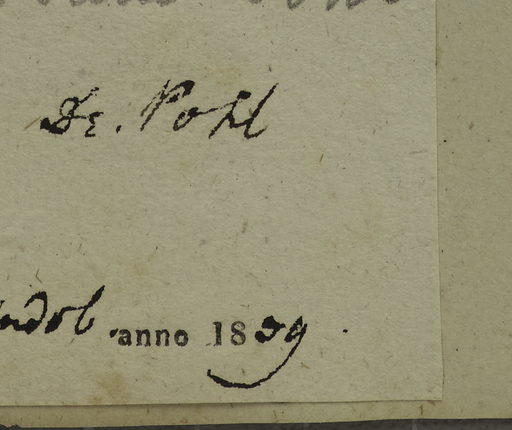 Dr. Pohl
ndob. anno 1839.